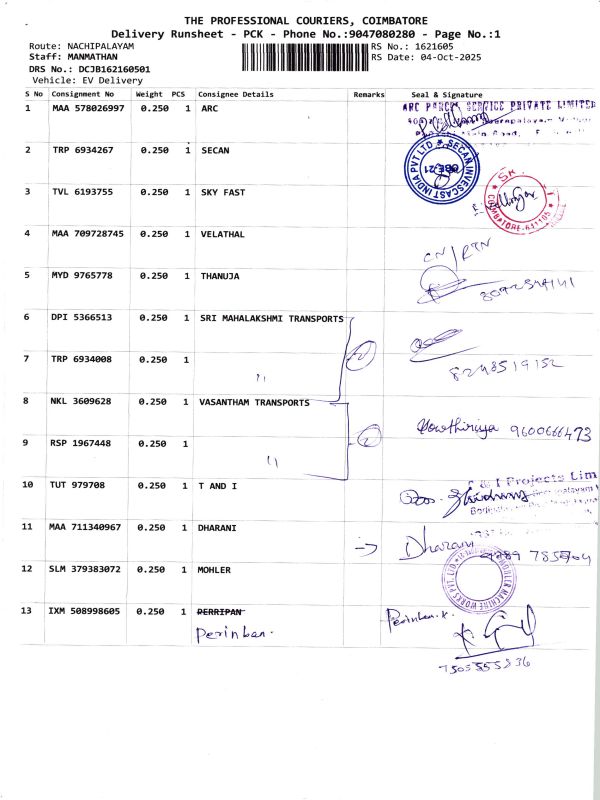 THE PROFESSIONAL COURIERS, COIMBATORE
Delivery Runsheet - PCK - Phone No.:9047080280 - Page No.:1
Route: NACHIPALAYAM
RS No.: 1621605
Staff: MANMATHAN
RS Date: 04-Oct-2025
DRS No.: DCJB162160501
Vehicle: EV Delivery
S No Consignment No Weight PCS Consignee Details Remarks Seal & Signature
1 MAA 578026997 0.250 1 ARC
ARC PARCEL SERVICE PRIVATE LIMITED
2 TRP 6934267 0.250 1 SECAN
SECAN INVESCAST INDIA PVT LTD
3 TVL 6193755 0.250 1 SKY FAST
COIMBATORE-641105
4 MAA 709728745 0.250 1 VELATHAL
CN/RTN
5 MYD 9765778 0.250 1 THANUJA
6 DPI 5366513 0.250 1 SRI MAHALAKSHMI TRANSPORTS
2
7 TRP 6934008 0.250 1 "
8248519152
8 NKL 3609628 0.250 1 VASANTHAM TRANSPORTS
2
Gowthiriya 9600666473
9 RSP 1967448 0.250 1 "
10 TUT 979708 0.250 1 T AND I
Projects Lim
11 MAA 711340967 0.250 1 DHARANI
Dharani
12 SLM 379383072 0.250 1 MOHLER
MOHLER MACHINE WORKS PVT. LTD.
13 IXM 508998605 0.250 1 PERRIPAN
Perinban.
Perinban.k